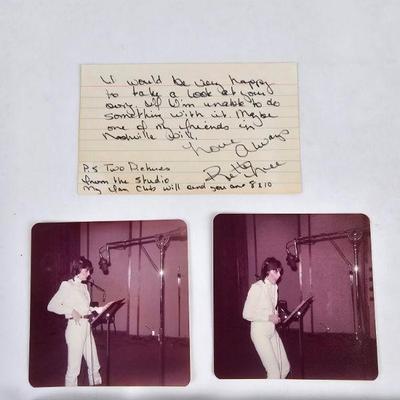 I would be very happy
to take a look at your
song. If I'm unable to do
something with it. Maybe
one of my friends in
Nashville Will.
Love Always
P.S Two Pictures
from the Studio
My Fan Club will send you one 8x10